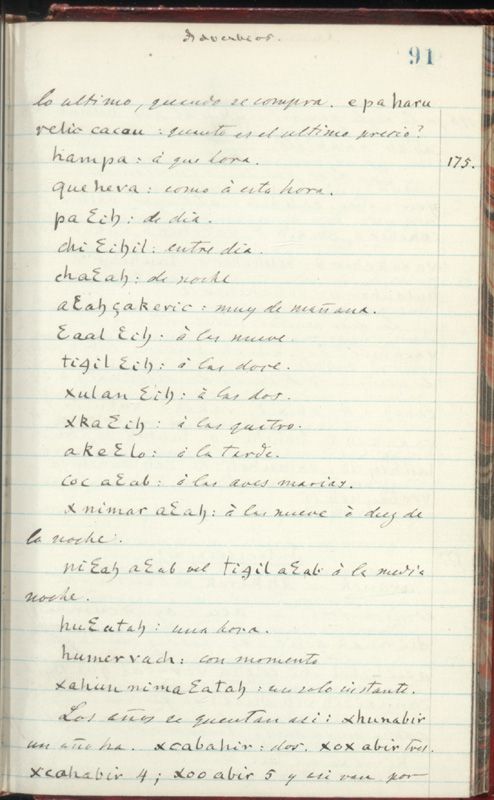 Adverbios.
91
lo ultimo, quando se compra. epa haru
relic cacau : quanto es el ultimo precio?
hampa : à que hora. 175.
queheva : como à esta hora.
pa Ɛih : de dia.
chi Ɛihil : entre dia.
chaƐah : de noche
aƐah çakeric : muy de mañana.
Ɛaal Ɛih : à las nueve.
tiqil Ɛih : à las doce.
xulan Ɛih : à las dos.
xkaƐih : à las quatro.
akeƐlo : à la tarde.
coc aƐab : à las aves marias.
xnimar aƐah : à las nueve ò diez de
la noche.
niƐah aƐab vel tiqil aƐab à la media
noche.
huƐatah : una hora.
humervach : con momento
xahun nimaƐatah : un solo instante.
Los años se quentan asi : xhunabir
un año ha. xcabahir : dos. xoxabir tres.
xcahabir 4 ; xooabir 5 y asi van por